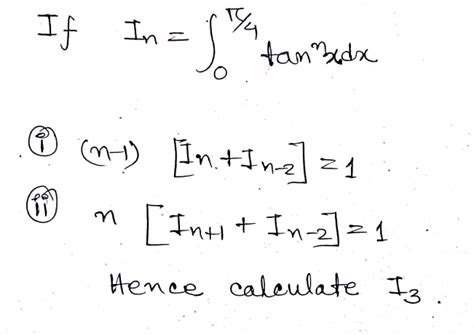 If Iₙ = ∫₀^π/4 tanⁿx dx
(i) (n-1) [Iₙ + Iₙ₋₂] = 1
(ii) n [Iₙ₊₁ + Iₙ₋₂] = 1
Hence calculate I₃.